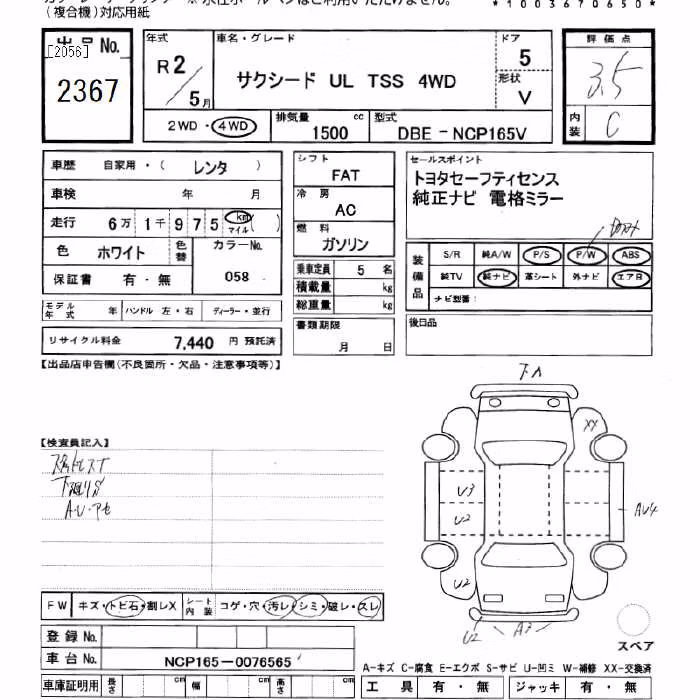 (複合機)対応用紙
*1003670650*
出品 No.
[2056]
2367
年式
R2/5月
車名・グレード
サクシード UL TSS 4WD
ドア
5
形状
V
評価点
3.5
内装
C
2WD・4WD
排気量
1500 cc
型式
DBE-NCP165V
車歴 自家用・( レンタ )
車検 年 月
走行 6万 1千 9 7 5 km マイル ( )
色 ホワイト 色替 カラーNo. 058
保証書 有・無
モデル年式 年 ハンドル 左・右 ディーラー・並行
リサイクル料金 7,440 円 預託済
シフト
FAT
冷房
AC
燃料
ガソリン
乗車定員 5 名
積載量 kg
総重量 kg
書類期限
月 日
セールスポイント
トヨタセーフティセンス
純正ナビ 電格ミラー
装備品
S/R 純A/W P/S P/W ABS
純TV 純ナビ 革シート 外ナビ エアB
ナビ型番:
後日品
【出品店申告欄(不良箇所・欠品・注意事項等)】
【検査員記入】
下廻りS
A・U・アセ
下A
XX
U3
U2
AU4
U2
U2
A3
FW キズ・トビ石・割レX
シート内装 コゲ・穴・汚レ・シミ・破レ・スレ
登録 No.
車台 No. NCP165-0076565
車庫証明用 長さ cm 幅 cm 高さ cm
スペア
A-キズ C-腐食 E-エクボ S-サビ U-凹ミ W-補修 XX-交換済
工具 有・無 ジャッキ 有・無